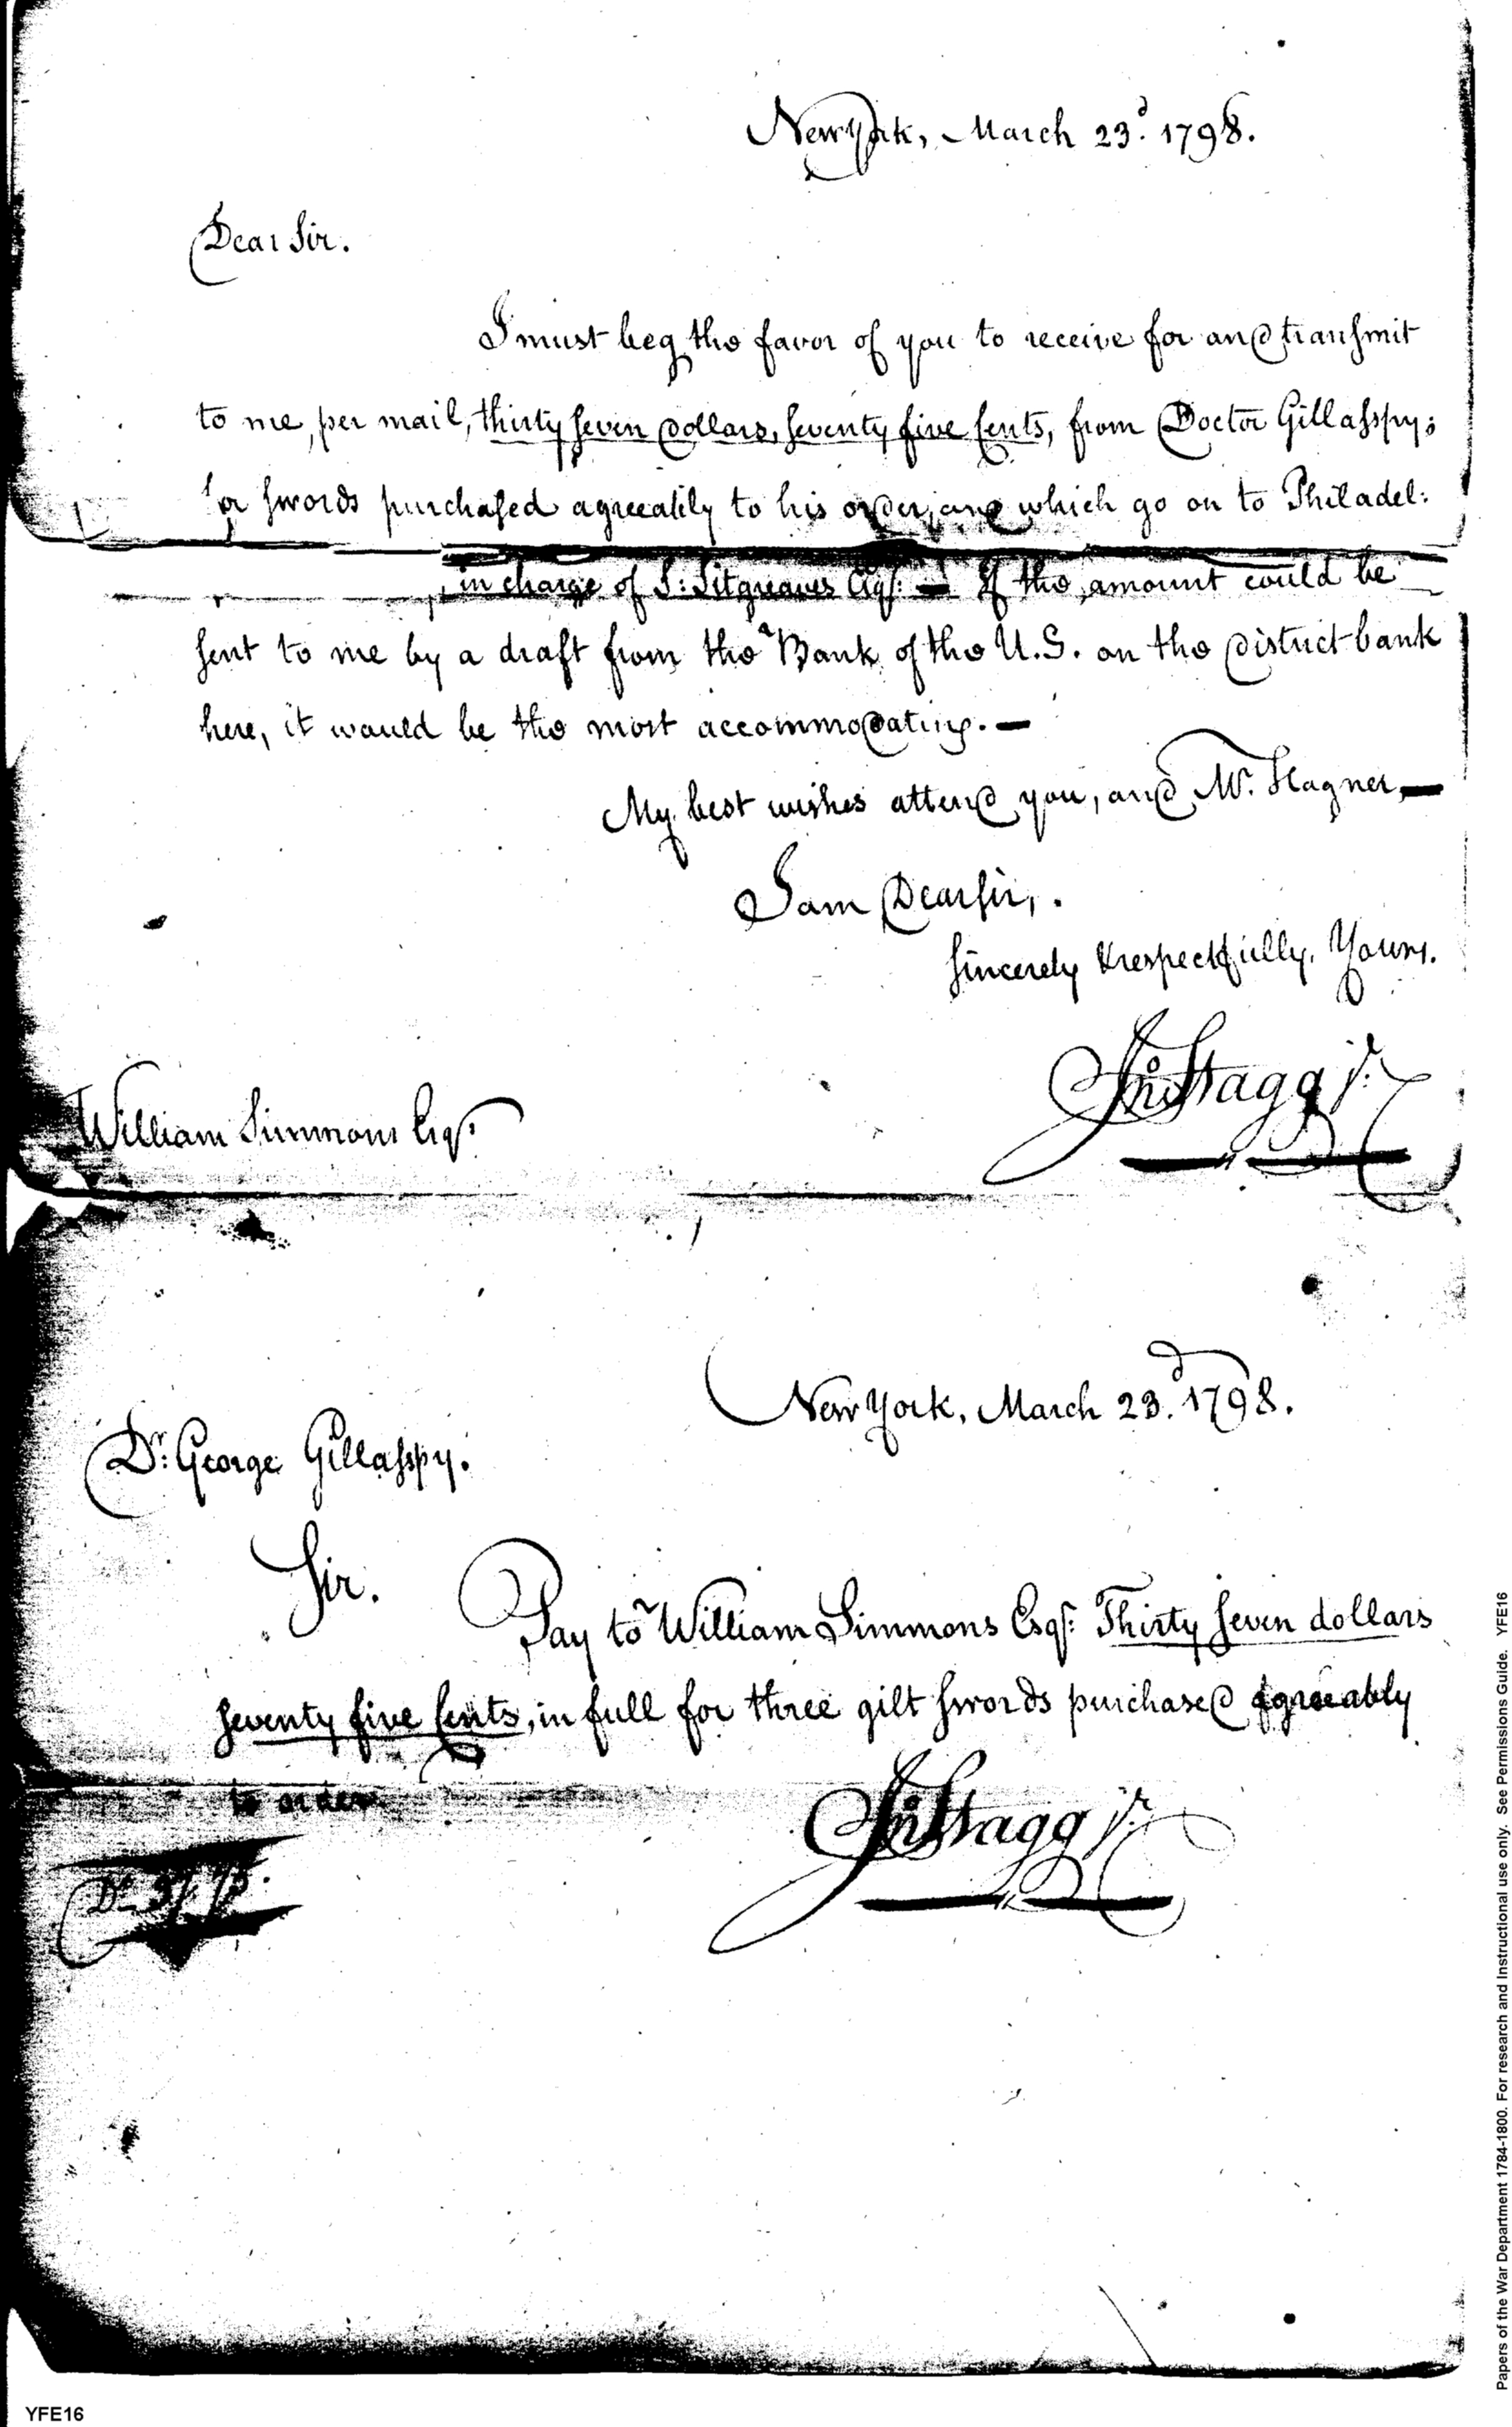 New York, March 23d. 1798.
Dear Sir.
I must beg the favor of you to receive for and transmit
to me, per mail, thirty seven dollars, seventy five Cents, from Doctor Gillasspy;
for swords purchased agreeably to his order, and which go on to Philadel:
in charge of S: Sitgreaves Esqr: — If the amount could be
sent to me by a draft from the Bank of the U.S. on the district bank
here, it would be the most accommodating. —
My best wishes attend you, and Mr. Hagner, —
I am Dear sir,
Sincerely & respectfully, Yours.
Jno Stagg Jr:
William Simmons Esqr:
New York, March 23d. 1798.
Dr: George Gillasspy.
Sir.
Pay to William Simmons Esqr: Thirty seven dollars
seventy five Cents, in full for three gilt swords purchased agreeably
to order
Jno Stagg Jr:
Ds. 37.75.
Papers of the War Department 1784-1800. For research and Instructional use only. See Permissions Guide. YFE16
YFE16